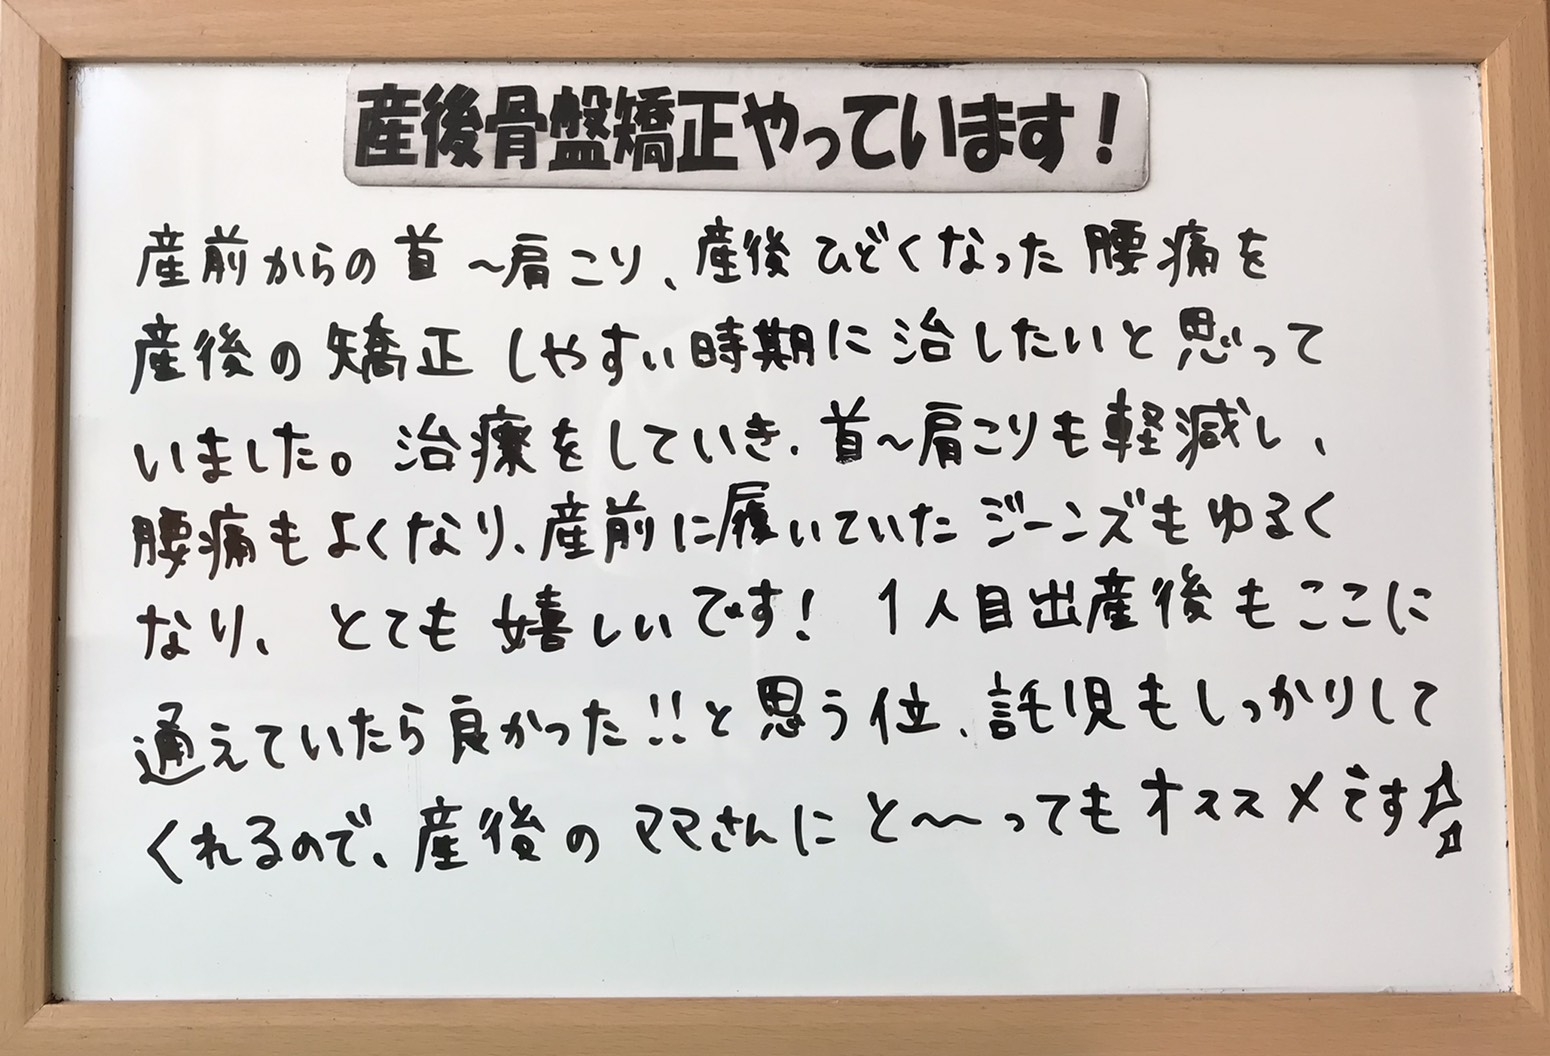 産後骨盤矯正やっています！
産前からの首～肩こり、産後ひどくなった腰痛を
産後の矯正しやすい時期に治したいと思って
いました。治療をしていき、首～肩こりも軽減し、
腰痛もよくなり、産前に履いていたジーンズもゆるく
なり、とても嬉しいです！ 1人目出産後もここに
通えていたら良かった!!と思う位、託児もしっかりして
くれるので、産後のママさんにと〜〜ってもオススメです